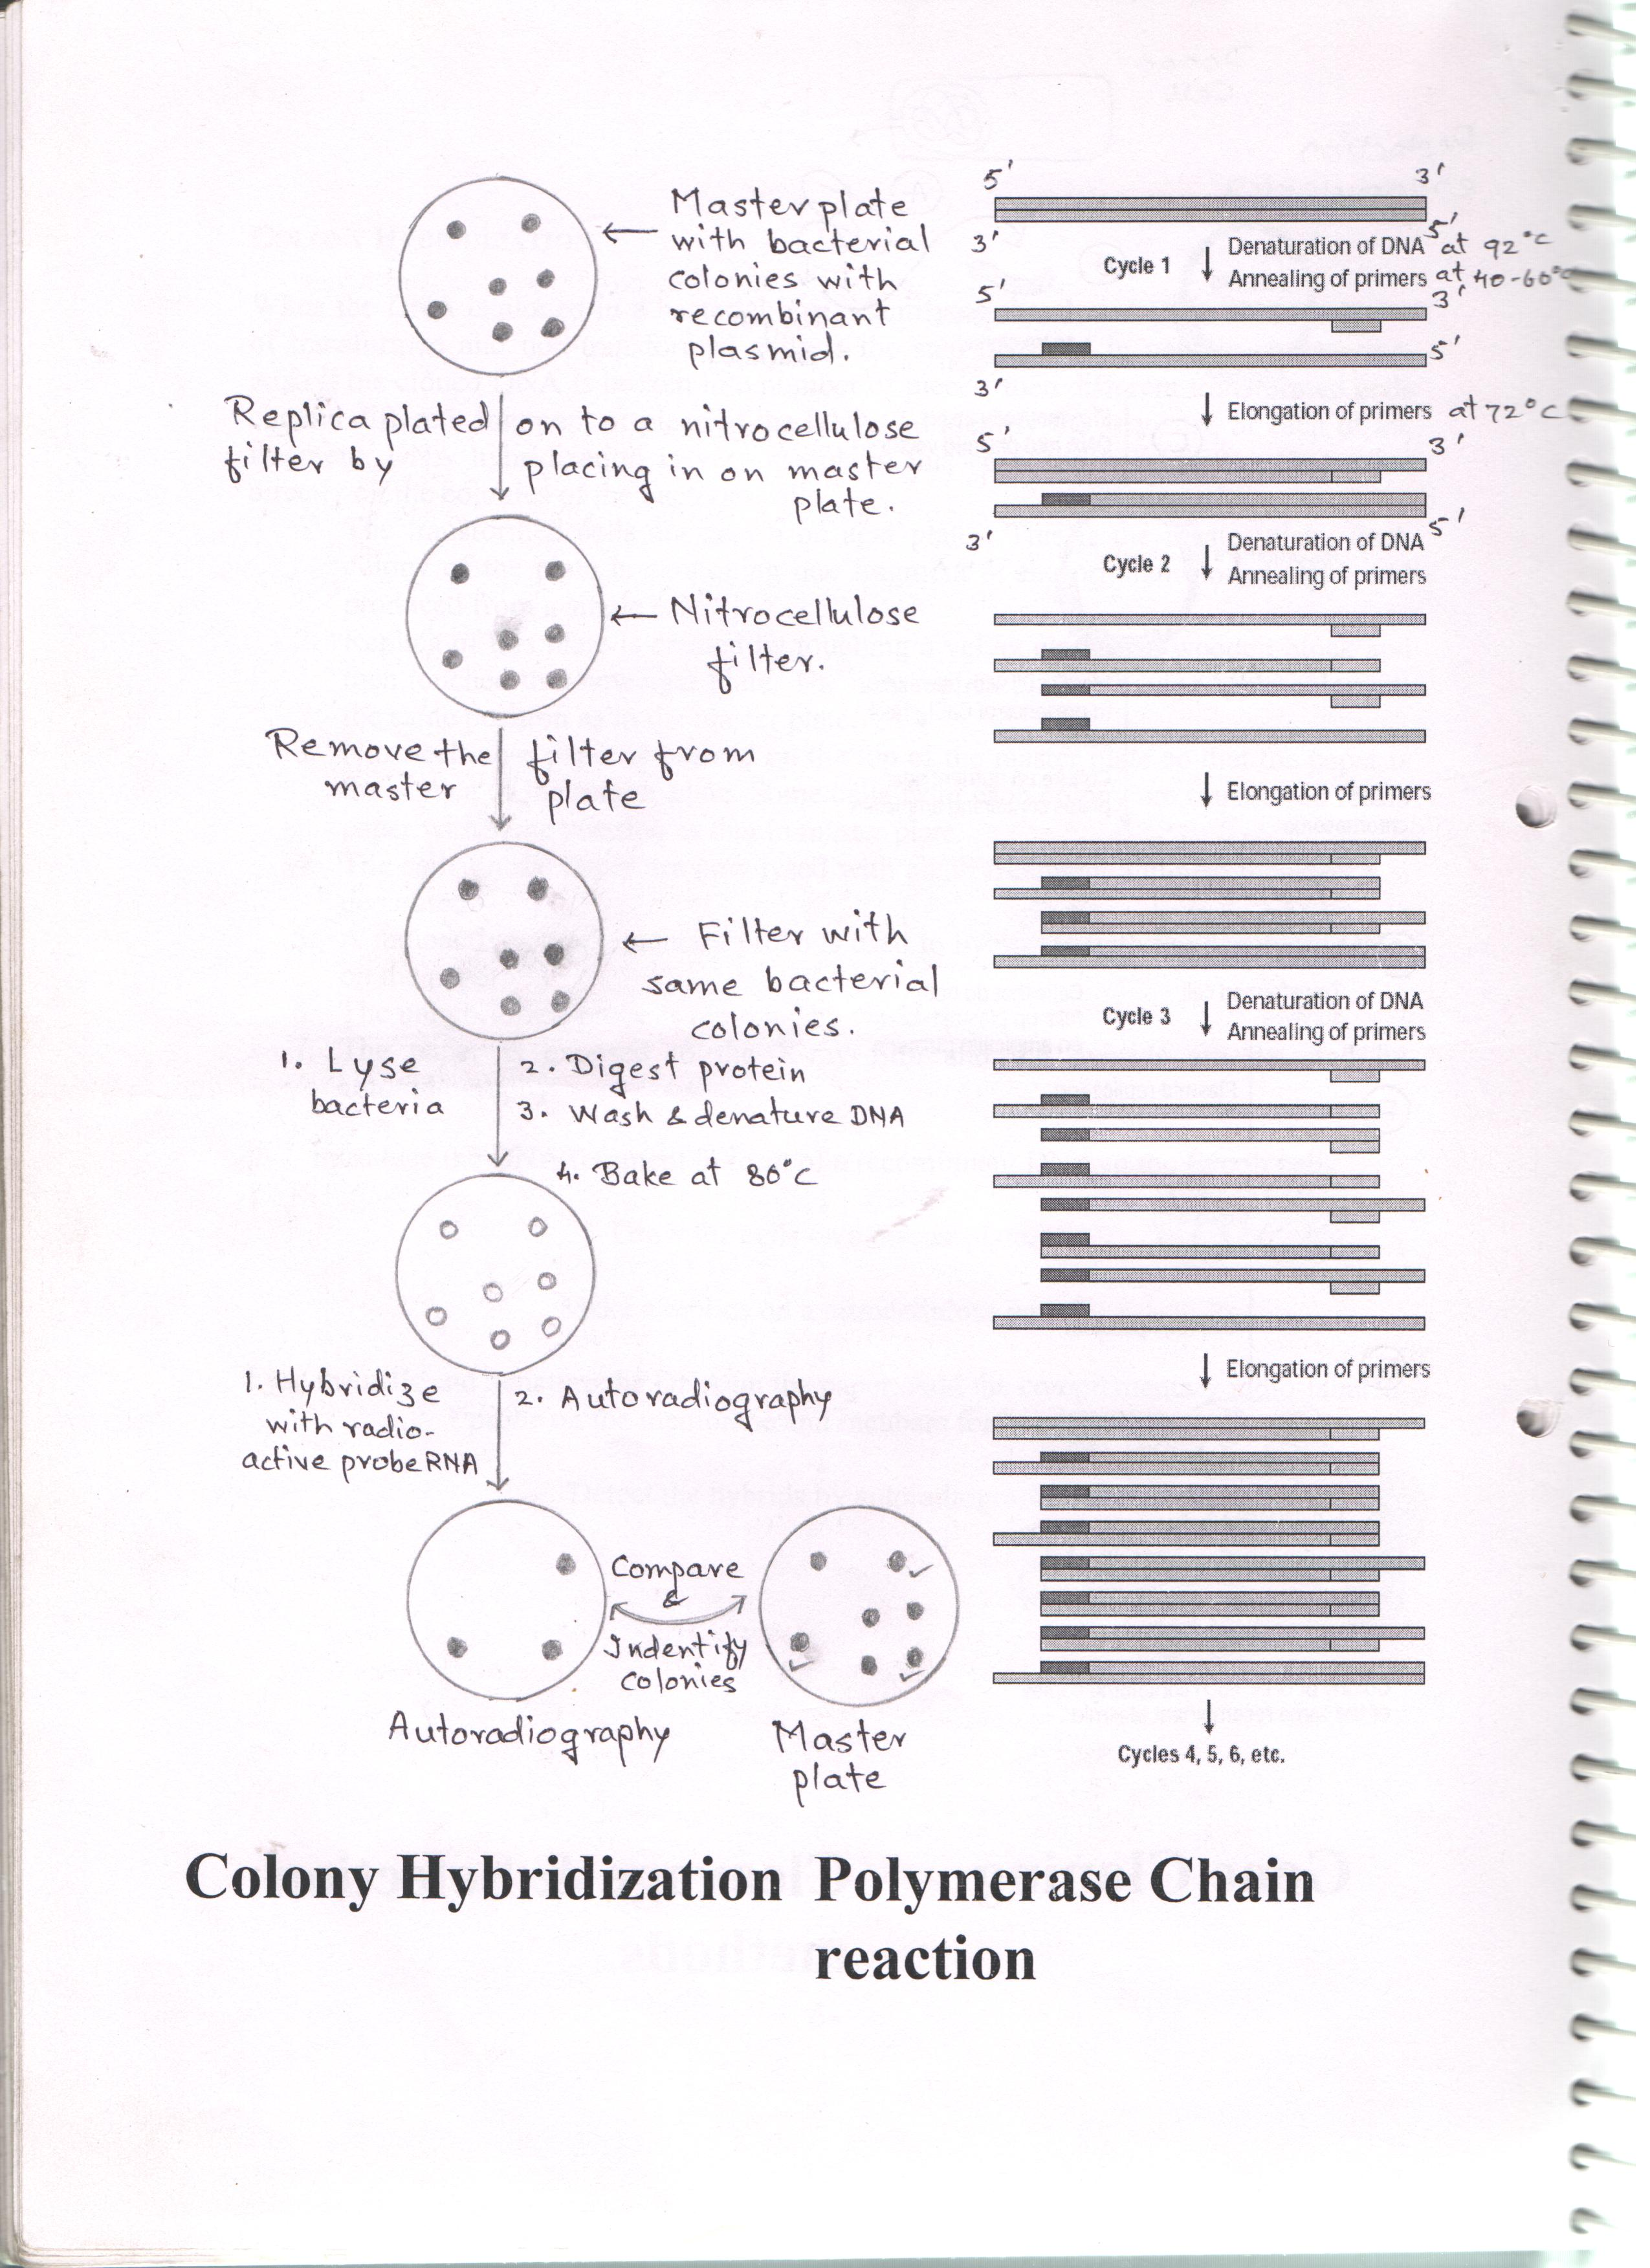 Master plate
with bacterial
colonies with
recombinant
plasmid.
Replica plated on to a nitrocellulose
filter by placing in on master
plate.
Nitrocellulose
filter.
Remove the filter from
master plate
Filter with
same bacterial
colonies.
1. Lyse
bacteria
2. Digest protein
3. Wash & denature DNA
4. Bake at 80°C
1. Hybridize
with radio-
active probe RNA
2. Autoradiography
Compare
&
Indentify
colonies
Autoradiography
Master
plate
Colony Hybridization
5'
3'
3'
5'
Cycle 1
Denaturation of DNA at 92°C
Annealing of primers at 40-60°C
5'
3'
5'
3'
Elongation of primers at 72°C
5'
3'
5'
3'
Cycle 2
Denaturation of DNA
Annealing of primers
Elongation of primers
Cycle 3
Denaturation of DNA
Annealing of primers
Elongation of primers
Cycles 4, 5, 6, etc.
Polymerase Chain
reaction